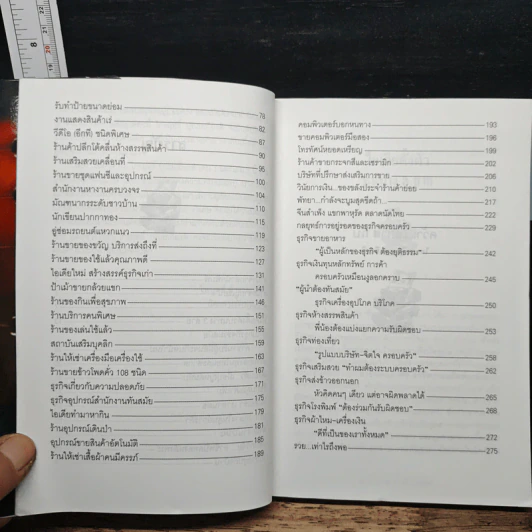 รับทำป้ายขนาดย่อม 78
งานแสดงสินค้าเร่ 82
วีดีโอ (อีกที) ชนิดพิเศษ 87
ร้านค้าปลีกโต้คลื่นห้างสรรพสินค้า 90
ร้านเสริมสวยเคลื่อนที่ 95
ร้านขายชุดแฟนซีและอุปกรณ์ 100
สำนักงานหางานครบวงจร 104
มัณฑนากรระดับชาวบ้าน 110
นักเขียนปากกาทอง 115
อู่ซ่อมรถยนต์แหวกแนว 119
ร้านขายของขวัญ บริการส่งถึงที่ 123
ร้านขายของใช้แล้วคุณภาพดี 127
ไอเดียใหม่ สร้างสรรค์ธุรกิจเก่า 131
ป้าเม้าขายกล้วยแขก 141
ร้านของกินเพื่อสุขภาพ 146
ร้านบริการคนพิเศษ 151
ร้านของเล่นใช้แล้ว 155
สถาบันเสริมบุคลิก 159
ร้านให้เช่าเครื่องมือเครื่องใช้ 163
ร้านขายข้าวโพดคั่ว 108 ชนิด 167
ธุรกิจเกี่ยวกับความปลอดภัย 171
ธุรกิจอุปกรณ์สำนักงานทันสมัย 175
ไอเดียทำมาหากิน 179
ร้านอุปกรณ์เดินป่า 181
อุปกรณ์ขายสินค้าอัตโนมัติ 185
ร้านให้เช่าเสื้อผ้าคนมีครรภ์ 189
คอมพิวเตอร์บอกหนทาง 193
ขายคอมพิวเตอร์มือสอง 196
โทรทัศน์หยอดเหรียญ 199
ร้านค้าขายกระจกสีและเซรามิก 202
บริษัทที่ปรึกษาส่งเสริมการขาย 206
วินัยการเงิน...ของขลังประจำร้านค้าย่อย 210
พัทยา...กำลังจะบูมสุดขีดถ้า... 217
จีนสำเพ็ง แขกพาหุรัด ตลาดนัดไทย 222
กลยุทธ์การอยู่รอดของธุรกิจครอบครัว 229
ธุรกิจขายอาหาร
"ผู้เป็นหลักของธุรกิจ ต้องยุติธรรม" 242
ธุรกิจเงินทุนหลักทรัพย์ การค้า
ครอบครัวเหมือนงูลอกคราบ 245
"ผู้นำต้องทันสมัย"
ธุรกิจเครื่องอุปโภค บริโภค 250
ธุรกิจห้างสรรพสินค้า
พี่น้องต้องแบ่งแยกความรับผิดชอบ 253
ธุรกิจท่องเที่ยว
"รูปแบบบริษัท-จิตใจ ครอบครัว" 258
ธุรกิจเสริมสวย "ทำผมต้องระบบครอบครัว" 262
ธุรกิจส่งข้าวออกนอก
หัวคิดคนๆ เดียว แต่อาจผิดพลาดได้ 265
ธุรกิจโรงพิมพ์ "ต้องร่วมกันรับผิดชอบ" 268
ธุรกิจผ้าไหม-เครื่องเงิน
"ดีที่เป็นของเราทั้งหมด" 272
รวย...เท่าไรถึงพอ 275